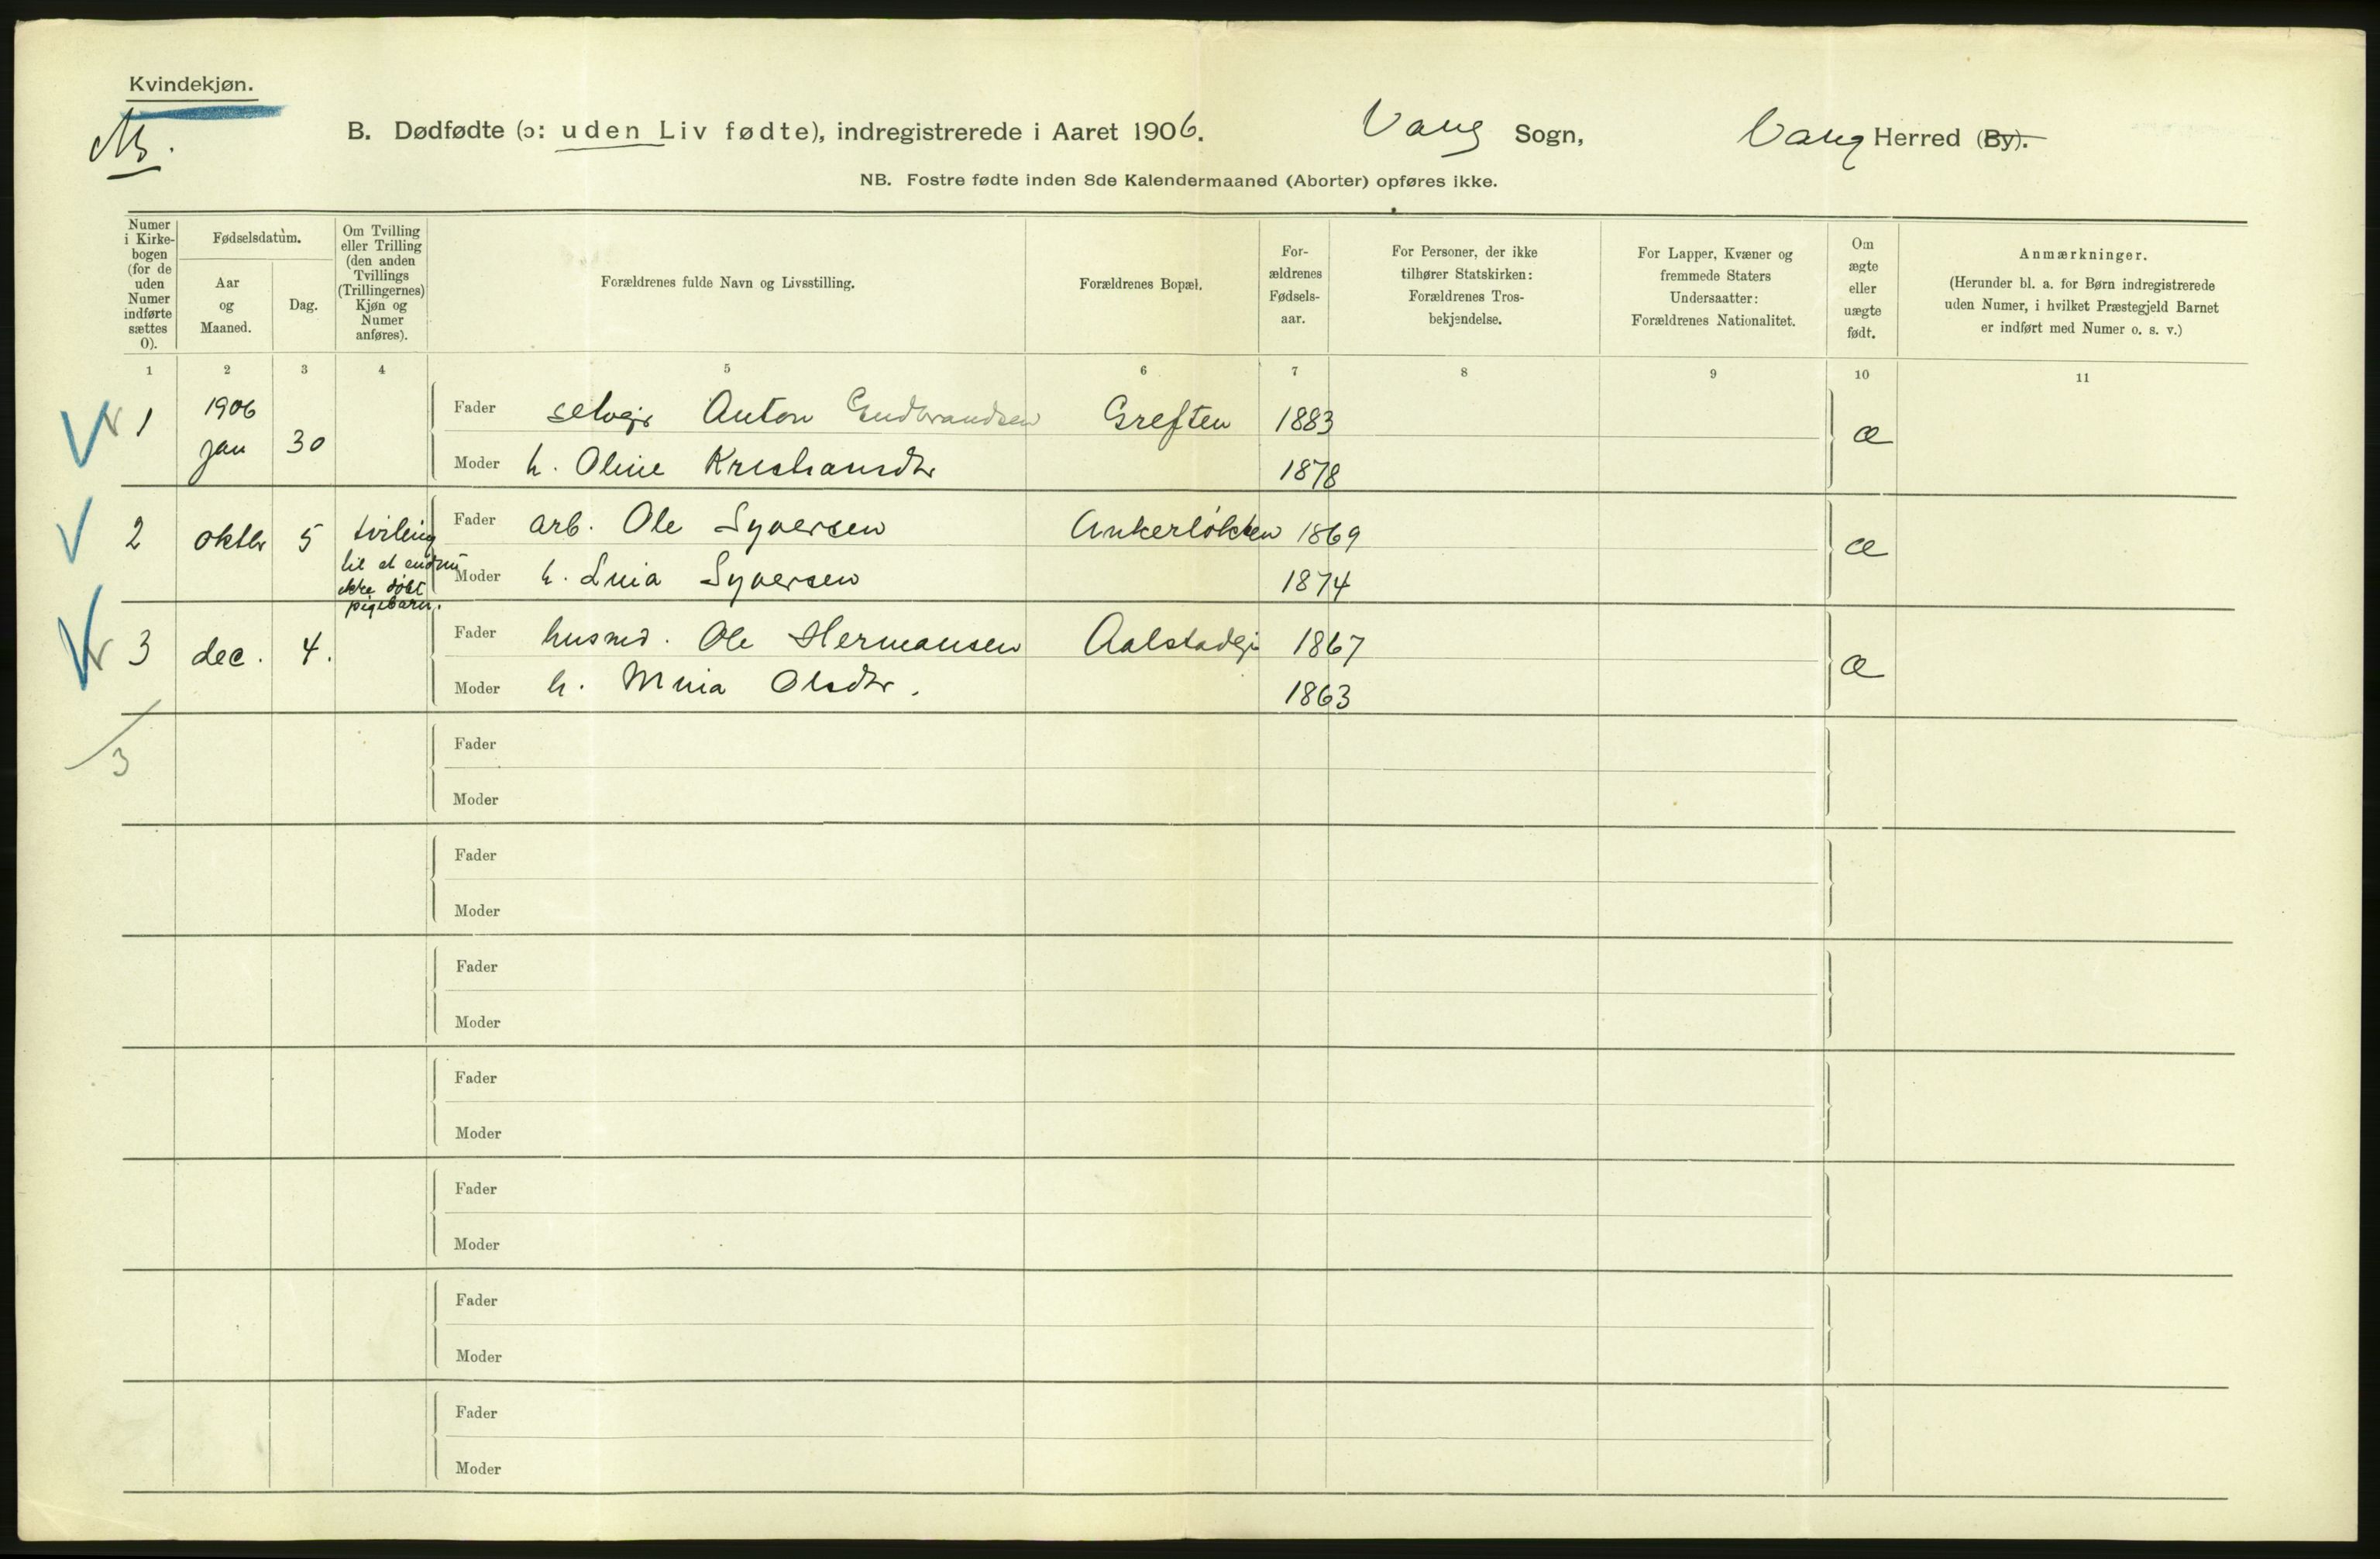 Kvindekjøn.
B. Dødfødte (ɔ: uden Liv fødte), indregistrerede i Aaret 1906. Vang Sogn, Vang Herred (By).
NB. Fostre fødte inden 8de Kalendermaaned (Aborter) opføres ikke.
Numer i Kirke-bogen (for de uden Numer indførte sættes 0).
Fødselsdatum.
Aar og Maaned.
Dag.
Om Tvilling eller Trilling (den anden Tvillings (Trillingernes) Kjøn og Numer anføres).
Forældrenes fulde Navn og Livsstilling.
Forældrenes Bopæl.
For-ældrenes Fødsels-aar.
For Personer, der ikke tilhører Statskirken: Forældrenes Tros-bekjendelse.
For Lapper, Kvæner og fremmede Staters Undersaatter: Forældrenes Nationalitet.
Om ægte eller uægte født.
Anmærkninger.
(Herunder bl. a. for Børn indregistrerede uden Numer, i hvilket Præstegjeld Barnet er indført med Numer o. s. v.)
1 2 3 4 5 6 7 8 9 10 11
1 1906 jan 30 Fader selvejr Anton Gudbrandsen Greften 1883 æ
Moder h. Oline Kristiansdtr 1878
2 oktbr 5 tvilling til et endnu ikke døbt pigebarn. Fader arb. Ole Syversen Ankerløkken 1869 æ
Moder h. Syversen 1874
3 dec. 4. Fader husmd. Ole Hermansen Aalstadej 1867 æ
Moder h. Mina Olsdtr. 1863
3
Fader
Moder
Fader
Moder
Fader
Moder
Fader
Moder
Fader
Moder
Fader
Moder
Fader
Moder